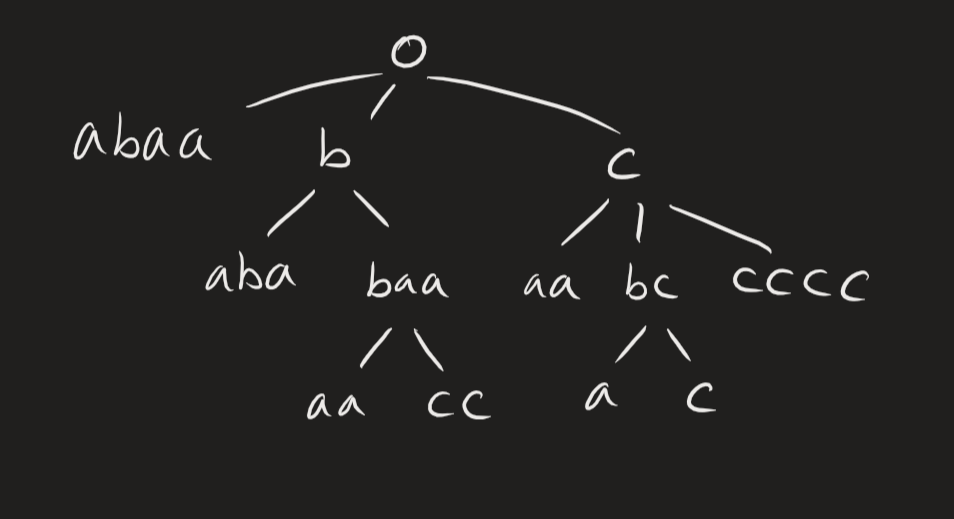 O
abaa b c
aba baa aa bc cccc
aa cc a c